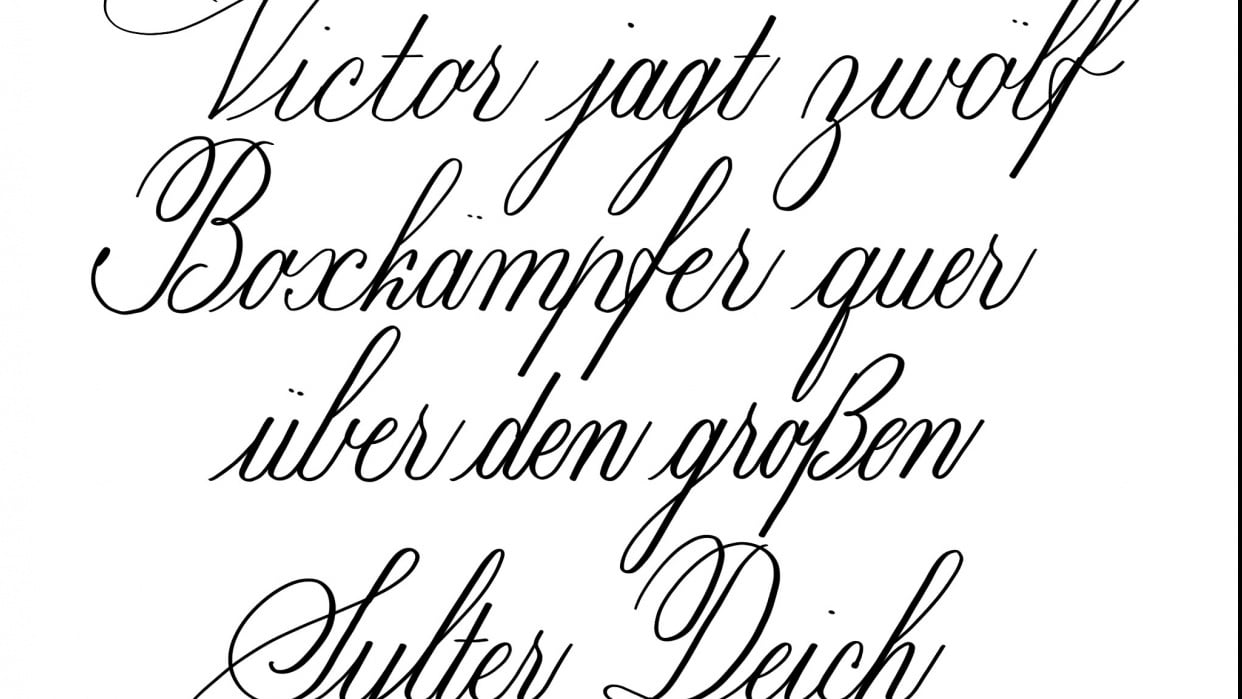 Victor jagt zwölf
Boxkämpfer quer
über den großen
Sylter Deich